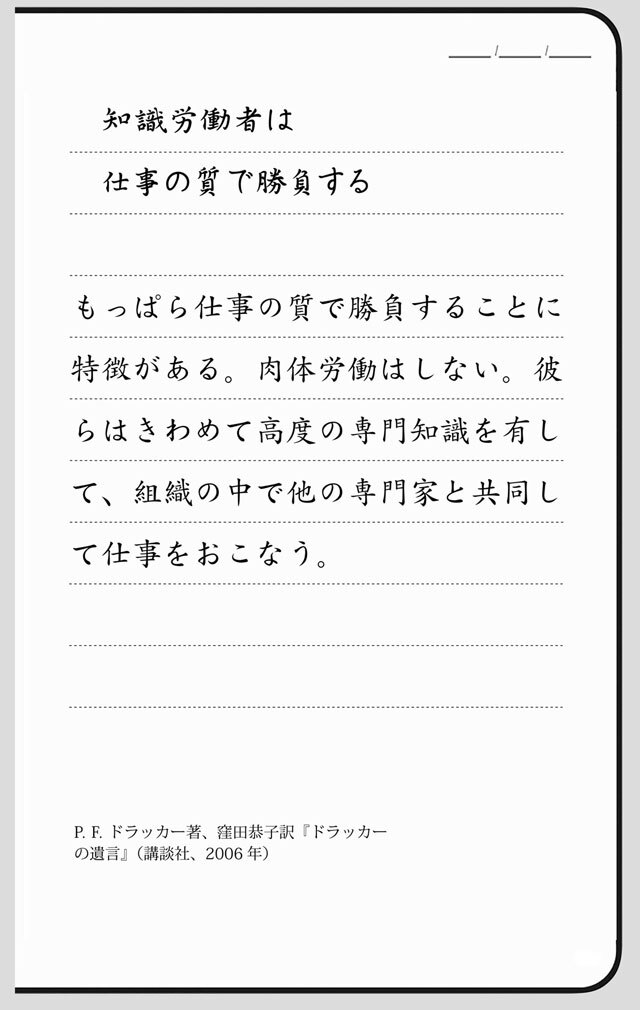 知識労働者は
仕事の質で勝負する
もっぱら仕事の質で勝負することに
特徴がある。肉体労働はしない。彼
らはきわめて高度の専門知識を有し
て、組織の中で他の専門家と共同し
て仕事をおこなう。
P. F. ドラッカー著、窪田恭子訳『ドラッカー
の遺言』（講談社、2006 年）